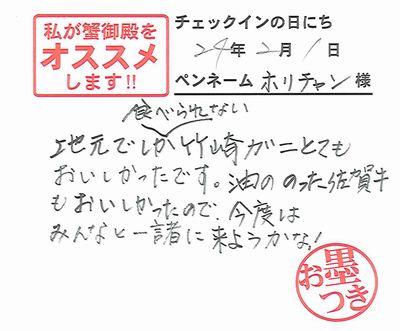 私が蟹御殿を
オススメ
します!!
チェックインの日にち
24年2月1日
ペンネーム ホリチャン 様
食べられない
地元でしか竹崎がニとても
おいしかったです。油ののった佐賀牛
もおいしかったので、今度は
みんなと一諸に来ようかな!
お墨
つき